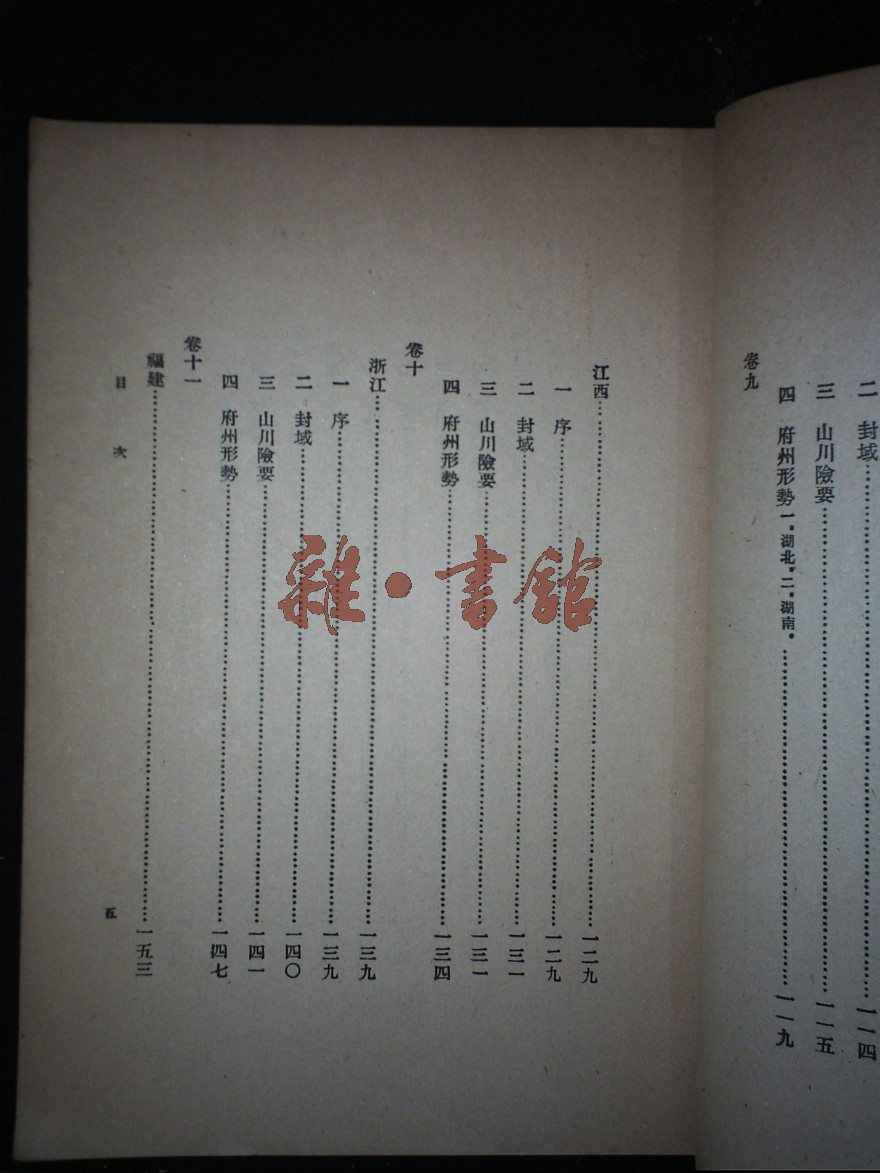 二 封域 一一四
三 山川險要 一一五
四 府州形勢 一.湖北.二.湖南. 一一九
卷九
江西 一二九
一 序 一二九
二 封域 一三一
三 山川險要 一三一
四 府州形勢 一三四
卷十
浙江 一三九
一 序 一三九
二 封域 一四〇
三 山川險要 一四一
四 府州形勢 一四七
卷十一
福建 一五三
目次
五
雜·書館